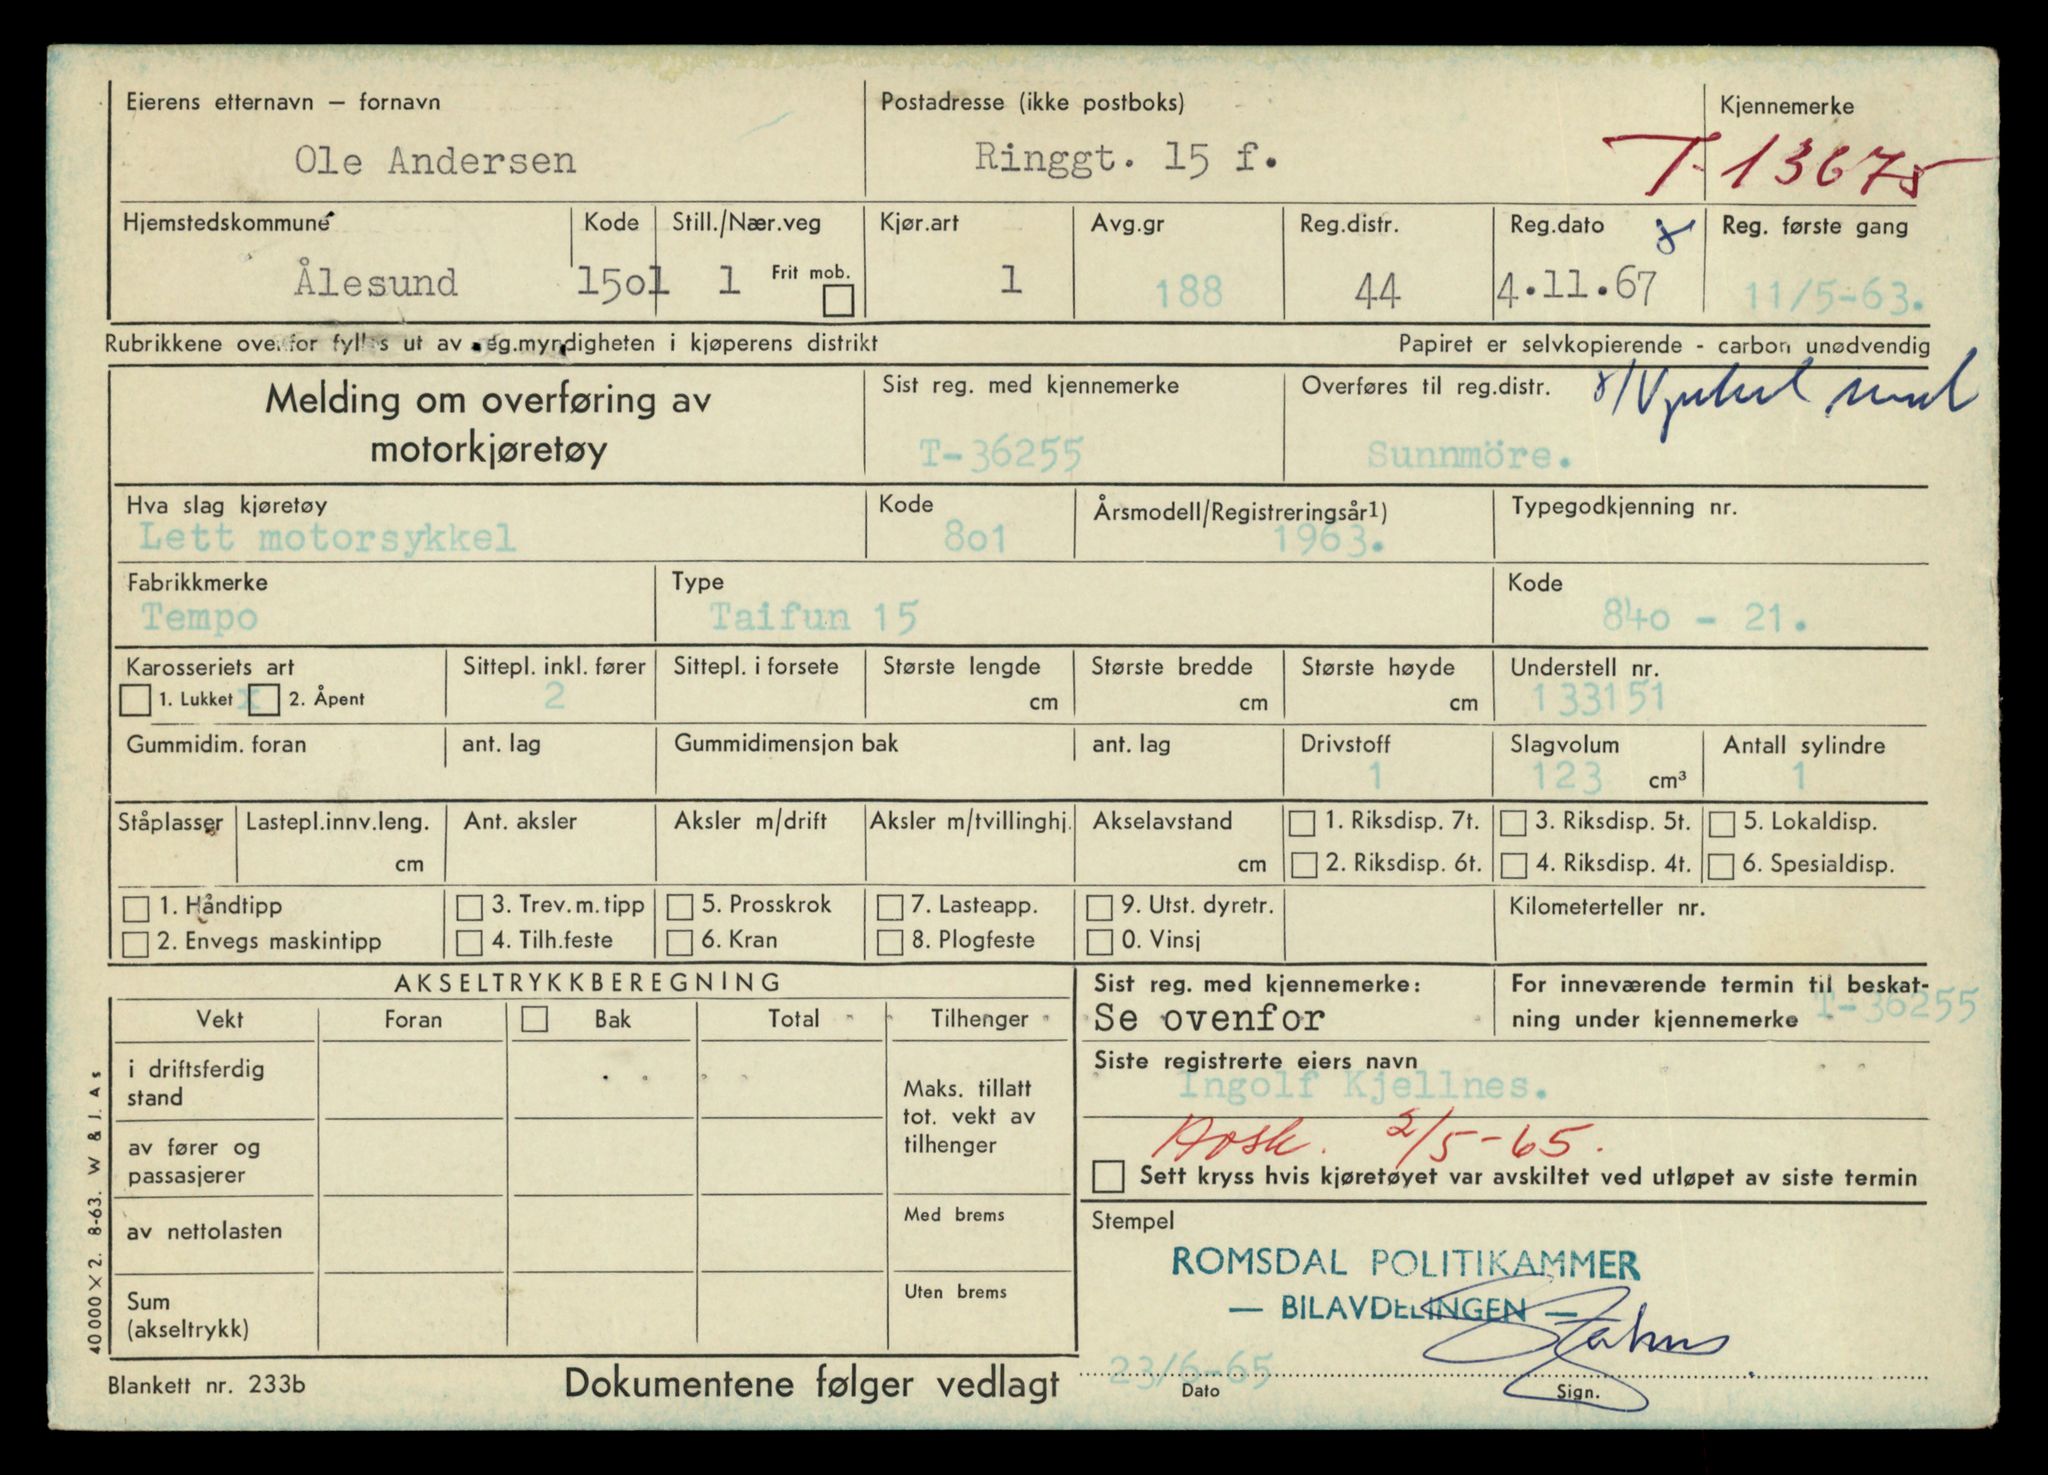 Eierens etternavn – fornavn
Ole Andersen
Postadresse (ikke postboks)
Ringgt. 15 f.
Kjennemerke
T-13675
Hjemstedskommune
Ålesund
Kode
1501
Still./Nær.veg
1
Frit mob.
Kjør.art
1
Avg.gr
188
Reg.distr.
44
Reg.dato
4.11.67
Reg. første gang
11/5-63.
Rubrikkene ovenfor fylles ut av reg.myndigheten i kjøperens distrikt
Papiret er selvkopierende - carbon unødvendig
Melding om overføring av
motorkjøretøy
Sist reg. med kjennemerke
T-36255
Overføres til reg.distr.
Sunnmöre.
Hva slag kjøretøy
Lett motorsykkel
Kode
801
Årsmodell/Registreringsår1)
1963.
Typegodkjenning nr.
Fabrikkmerke
Tempo
Type
Taifun 15
Kode
840 - 21.
Karosseriets art
1. Lukket x 2. Åpent
Sittepl. inkl. fører
2
Sittepl. i forsete
Største lengde
cm
Største bredde
cm
Største høyde
cm
Understell nr.
133151
Gummidim. foran
ant. lag
Gummidimensjon bak
ant. lag
Drivstoff
1
Slagvolum
123 cm³
Antall sylindre
1
Ståplasser
Lastepl.innv.leng.
cm
Ant. aksler
Aksler m/drift
Aksler m/tvillinghj.
Akselavstand
cm
1. Riksdisp. 7t.
2. Riksdisp. 6t.
3. Riksdisp. 5t.
4. Riksdisp. 4t.
5. Lokaldisp.
6. Spesialdisp.
1. Håndtipp
2. Envegs maskintipp
3. Trev. m. tipp
4. Tilh.feste
5. Prosskrok
6. Kran
7. Lasteapp.
8. Plogfeste
9. Utst. dyretr.
0. Vinsj
Kilometerteller nr.
AKSELTRYKKBEREGNING
Vekt
Foran
Bak
Total
Tilhenger
i driftsferdig
stand
av fører og
passasjerer
av nettolasten
Sum
(akseltrykk)
Maks. tillatt
tot. vekt av
tilhenger
Med brems
Uten brems
Sist reg. med kjennemerke:
Se ovenfor
For inneværende termin til beskat-
ning under kjennemerke T-36255
Siste registrerte eiers navn
Ingolf Kjellnes.
2/5-65.
Sett kryss hvis kjøretøyet var avskiltet ved utløpet av siste termin
Stempel
ROMSDAL POLITIKAMMER
— BILAVDELINGEN —
23/6-65
Dato
Sign.
40 000 X 2. 8-63. W & J. As
Blankett nr. 233b
Dokumentene følger vedlagt